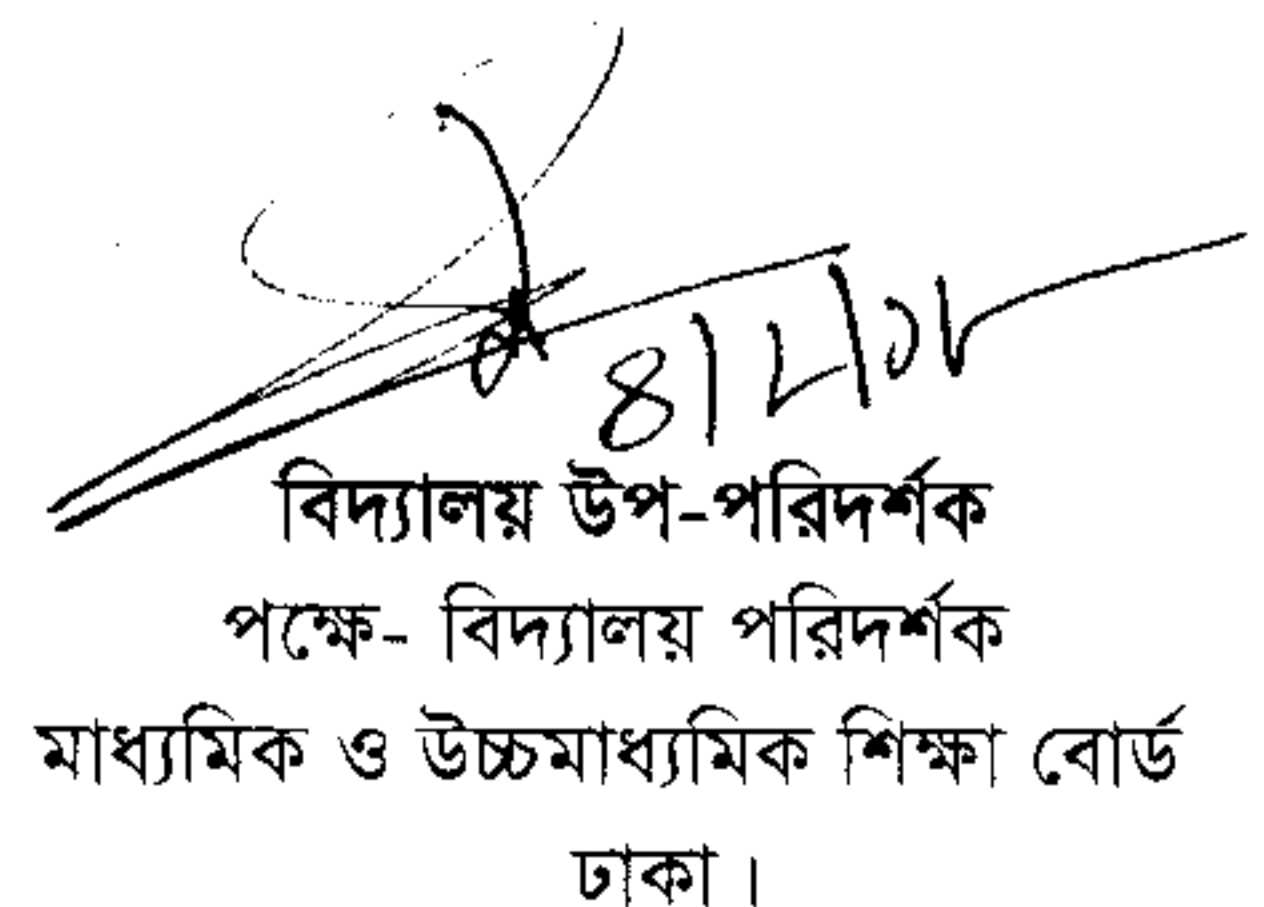 ৪/৮/১৮
বিদ্যালয় উপ-পরিদর্শক
পক্ষে- বিদ্যালয় পরিদর্শক
মাধ্যমিক ও উচ্চমাধ্যমিক শিক্ষা বোর্ড
ঢাকা।